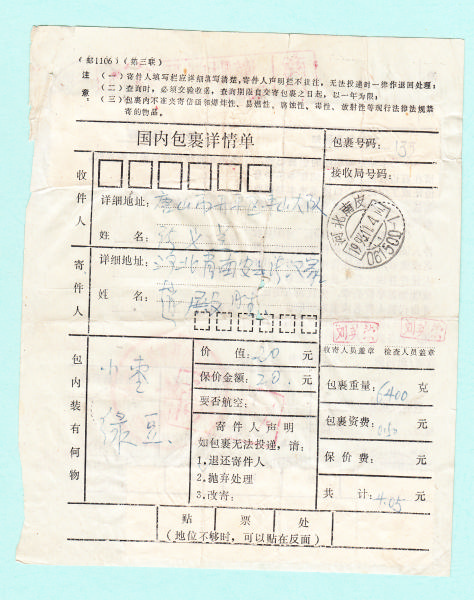 (邮1106)(第三联)
注意：
(一)寄件人填写栏应详细填写清楚，寄件人声明栏不批注，无法投递时一律作退回处理；
(二)查询时，必须交验收据，查询期限自交寄包裹之日起，以一年为限；
(三)包裹内不准夹寄信函和爆炸性、易燃性、腐蚀性、毒性、放射性等现行法律法规禁
寄的物品。
国内包裹详情单
包裹号码：
接收局号码：
收件人
详细地址：唐山市
姓名：
河北南皮
061500
寄件人
详细地址：河北省南皮
姓名：
收寄人员盖章 检查人员盖章
包内装有何物
小枣
绿豆
价值：20元
保价金额：20.元
要否航空：
寄件人声明
如包裹无法投递，请：
1.退还寄件人
2.抛弃处理
3.改寄：
包裹重量：6400克
包裹资费：元
保价费：元
共计：4.05元
贴票处
(地位不够时，可以贴在反面)